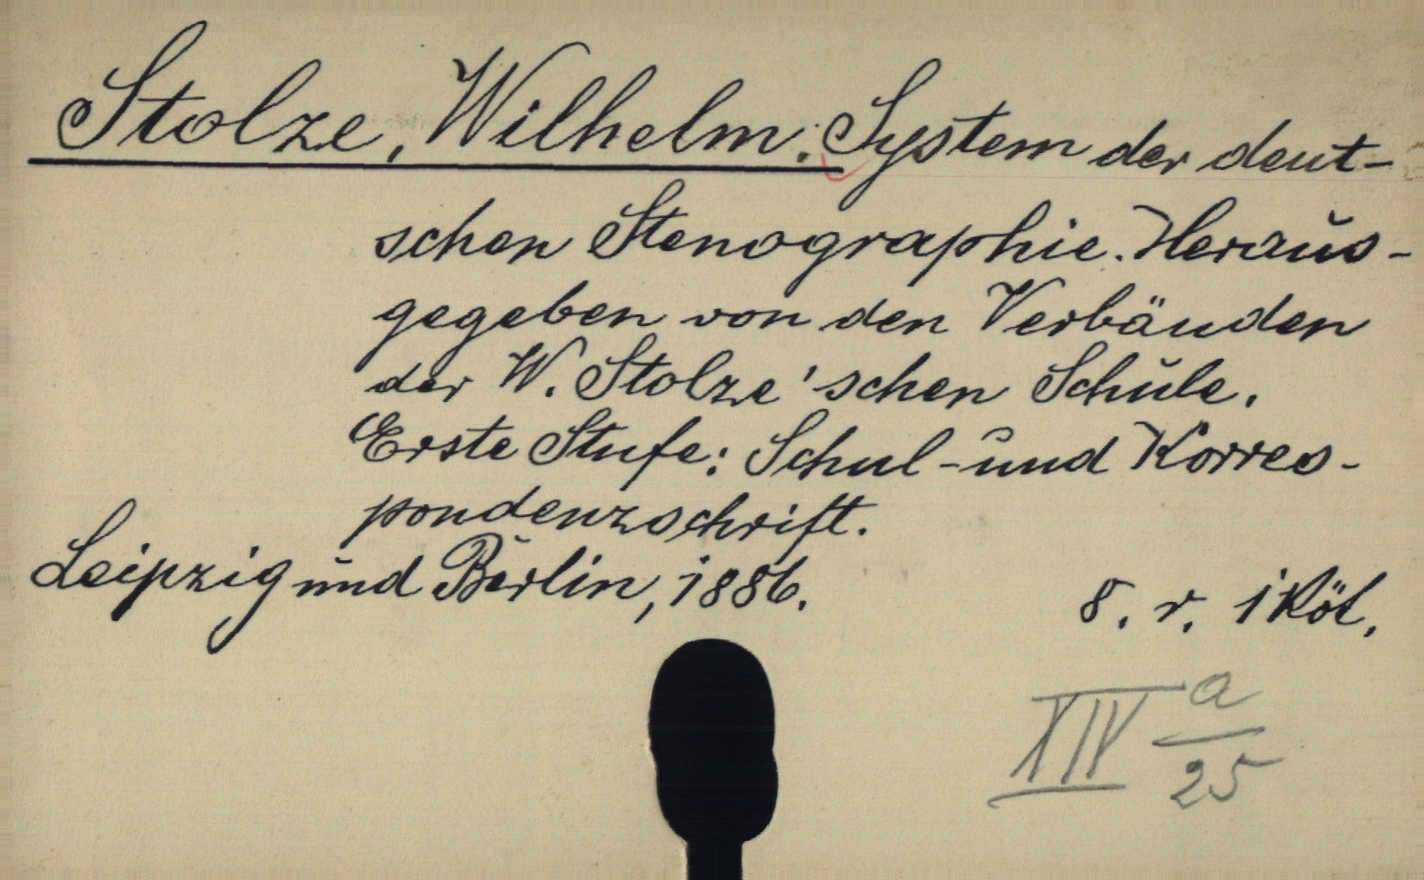 Stolze, Wilhelm. System der deut-
schen Stenographie. Heraus-
gegeben von den Verbänden
der W. Stolze'schen Schule.
Erste Stufe: Schul- und Korres-
pondenzschrift.
Leipzig und Berlin, 1886.
8. r. 1 Köt.
XIV a/25